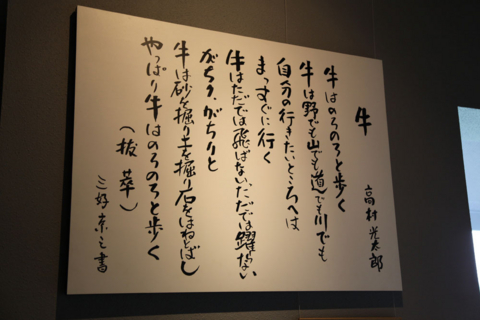 牛
高村光太郎
牛はのろのろと歩く
牛は野でも山でも道でも川でも
自分の行きたいところへは
まっすぐに行く
牛はただでは飛ばない、ただでは躍らない
がちり、がちりと
牛は砂を掘り土を掘り石をはねとばし
やっぱり牛はのろのろと歩く
（抜萃）
三好 之書